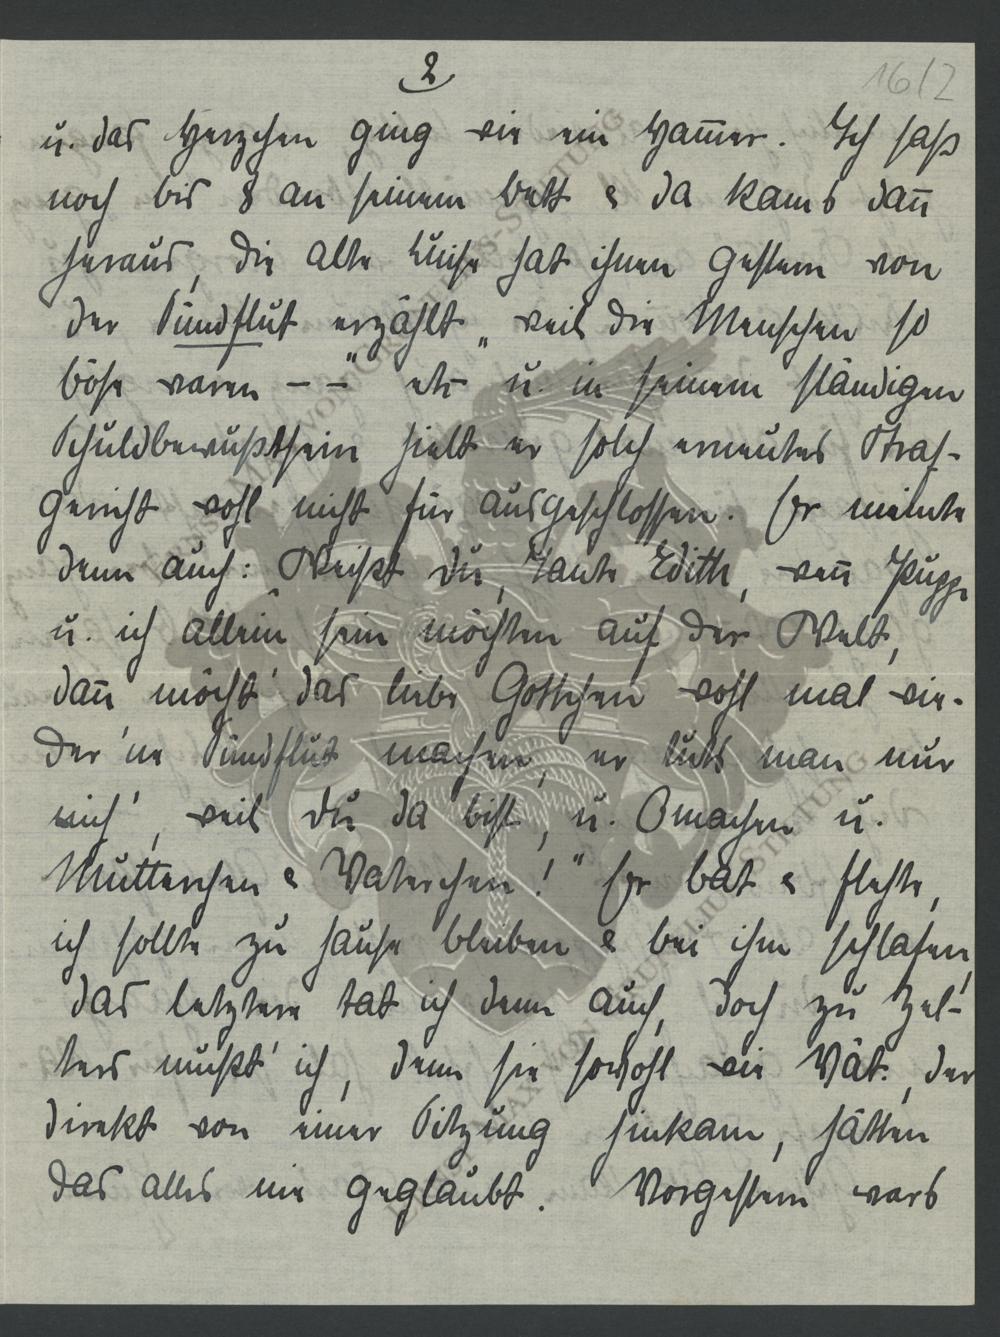 2
16/2
u. das Herzchen ging wie einHam̅er. Ich saß
noch bis 8 an seinem Bett & da kams dan̅
heraus, die alte Luise hat ihnen gestern von
der Sündflut erzählt „weil die Menschen so
böse waren – –" etc u. in seinem ständigen
Schuldbewußtsein hielt er solch erneutes Straf-
gericht wohl nicht für ausgeschlossen. Er meinte
denn auch: „Weißt du, Tante Edith, wen̅ Puppe
u. ich allein sein möchten auf der Welt,
dan̅ möcht' das liebe Gottchen wohl mal wie-
der 'ne Sündflut machen, er tuts man nur
nich', weil du da bist, u. Omachen u.
Mutterchen & Vaterchen!" Er bat & flehte,
ich sollte zu Hause bleiben & bei ihm schlafen,
das letztere tat ich denn auch, doch zu Hel-
ters mußt' ich, denn sie sowohl wie Vät., der
direkt von einer Sitzung hinkam, hätten
das alles nie geglaubt. Vorgestern wars